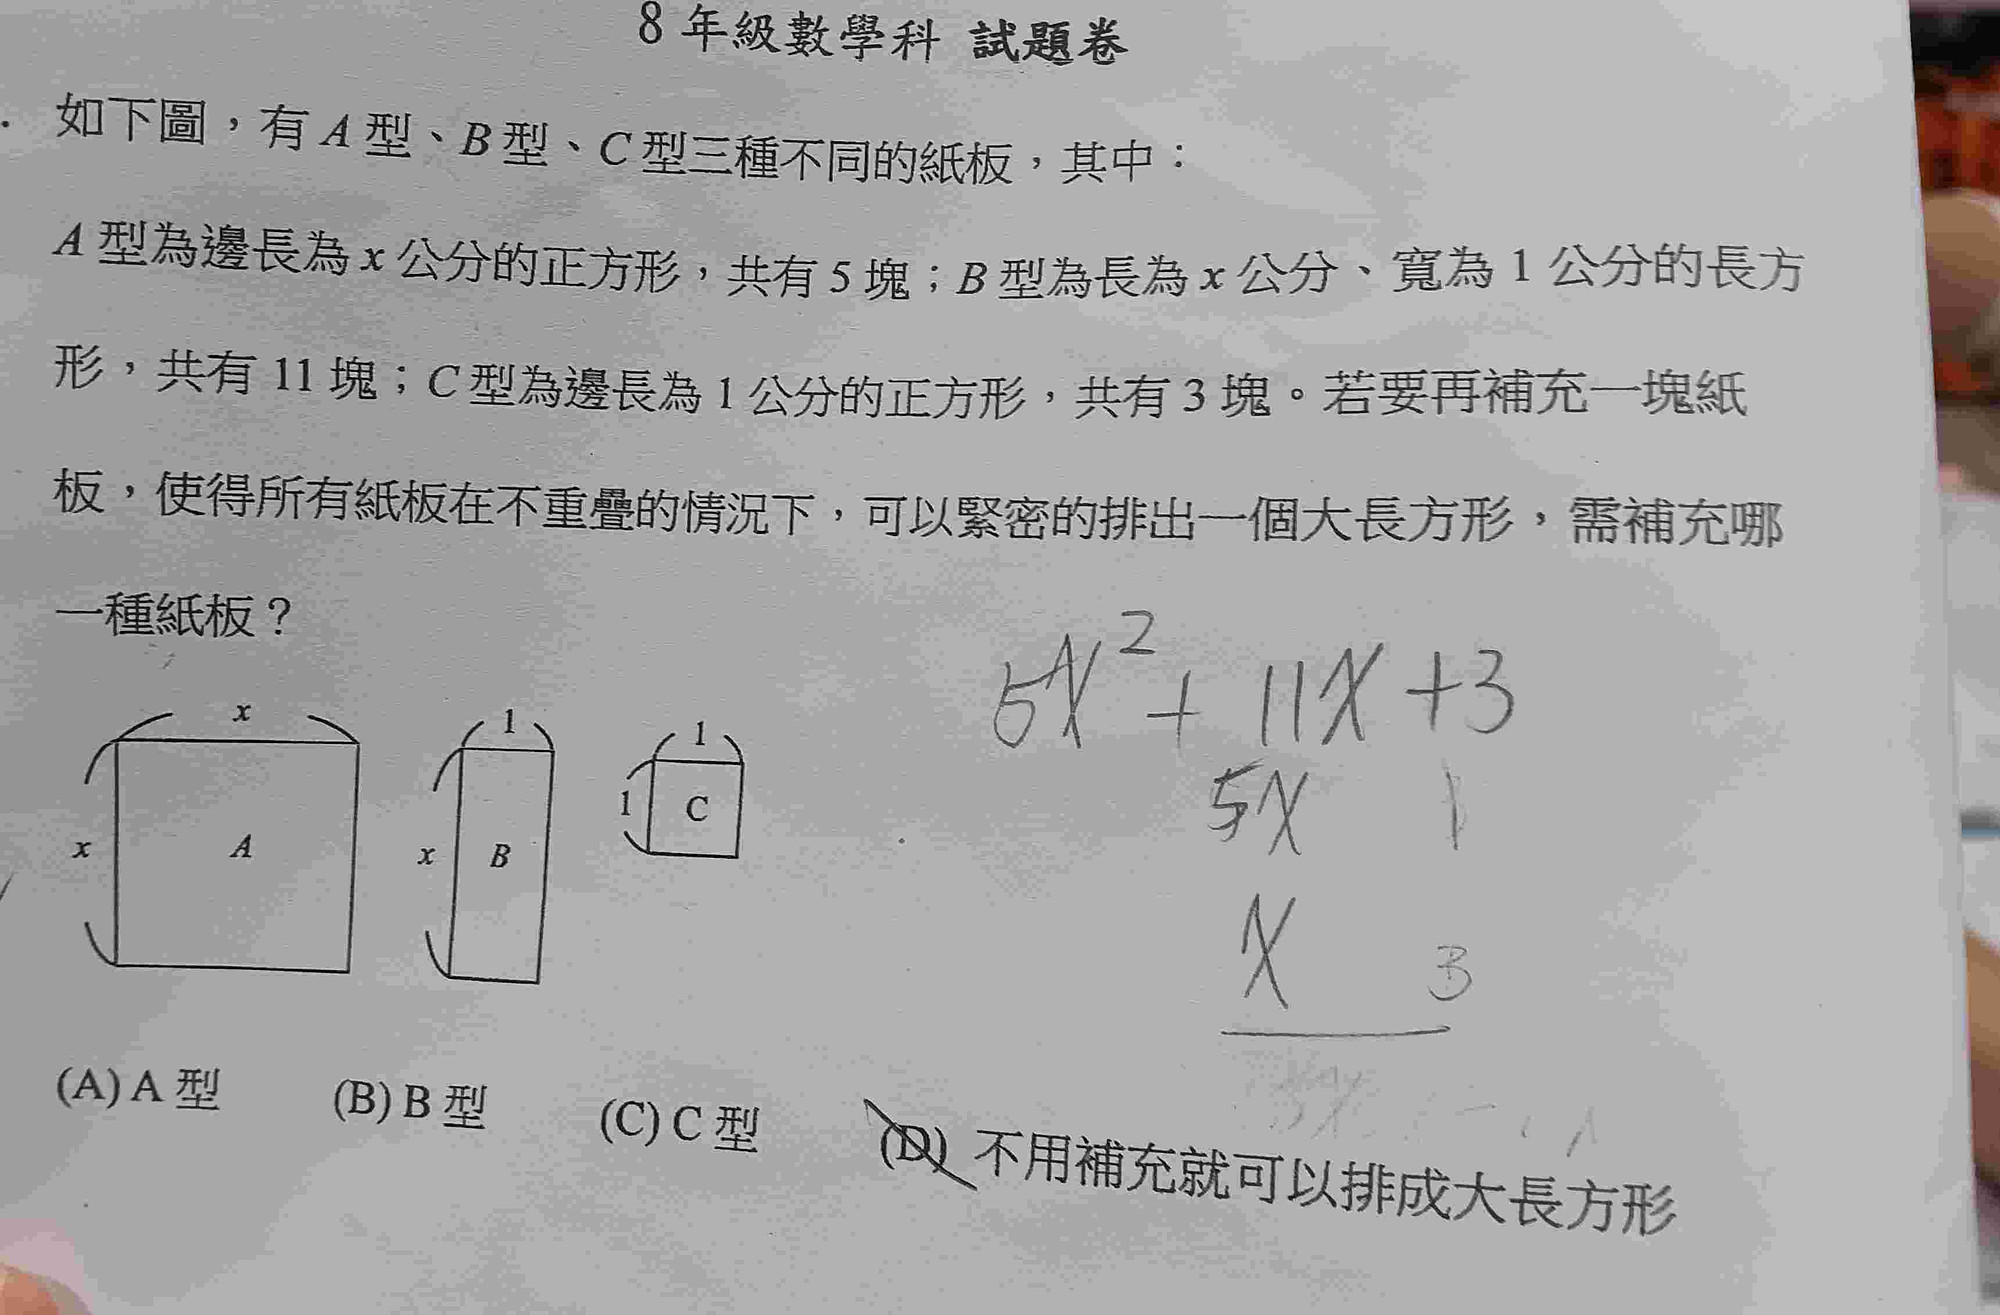 8 年級數學科 試題卷
. 如下圖，有 A 型、B 型、C 型三種不同的紙板，其中：
A 型為邊長為 x 公分的正方形，共有 5 塊；B 型為長為 x 公分、寬為 1 公分的長方
形，共有 11 塊；C 型為邊長為 1 公分的正方形，共有 3 塊。若要再補充一塊紙
板，使得所有紙板在不重疊的情況下，可以緊密的排出一個大長方形，需補充哪
一種紙板？
5x² + 11x + 3
5x 1
x 3
x 1 1
x A x B 1 C
(A) A 型 (B) B 型 (C) C 型 (D) 不用補充就可以排成大長方形